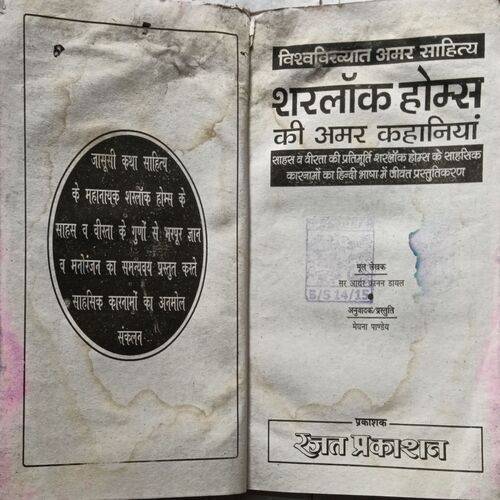 जासूसी कथा साहित्य
के महानायक शरलॉक होम्स के
साहस व वीरता के गुणों से भरपूर ज्ञान
व मनोरंजन का समन्वय प्रस्तुत करते
साहसिक कारनामों का अनमोल
संकलन
विश्वविख्यात अमर साहित्य
शरलॉक होम्स
की अमर कहानियां
साहस व वीरता की प्रतिमूर्ति शरलॉक होम्स के साहसिक
कारनामों का हिन्दी भाषा में जीवंत प्रस्तुतिकरण
मूल लेखक
सर आर्थर कानन डायल
B/S 14/15
अनुवादक/प्रस्तुति
मेघना पाण्डेय
प्रकाशक
रजत प्रकाशन